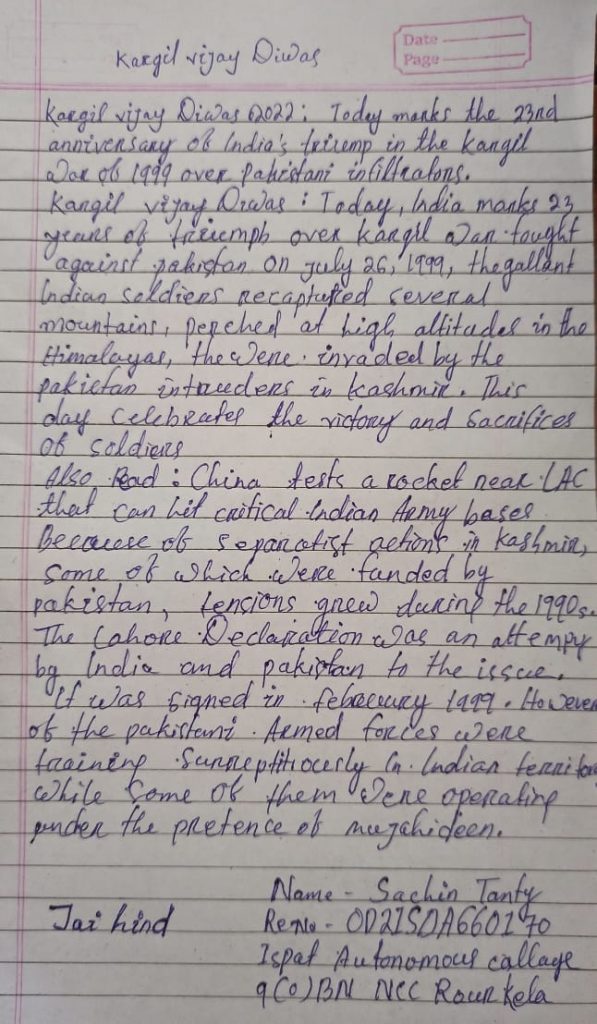 Kargil vijay Diwas
Date
Page
Kargil vijay Diwas 2022: Today marks the 23nd
anniversary of India's triump in the Kargil
War of 1999 over Pakistani infiltratons.
Kargil vijay Diwas : Today, India marks 23
years of triumph over Kargil War fought
against pakistan on July 26, 1999, the gallant
Indian soldiers recaptured several
mountains, perched at high altitudes in the
Himalayas, the were invaded by the
pakistan intruders in Kashmir. This
day celebrates the victory and sacrifices
of soldiers
Also Read : China tests a rocket near LAC
that can hit critical Indian Army bases
Because of separatist actions in Kashmir,
some of which were funded by
pakistan, tensions grew during the 1990s.
The Lahore Declaration was an attempy
by India and pakistan to the issue.
It was signed in february 1999. However
of the pakistani Armed forces were
training surreptitiously in Indian territory
while some of them were operating
under the pretence of mujahideen.
Name - Sachin Tanty
Jai hind
Re.No - OD21SDA660170
Ispat Autonomous callage
9(O)BN NCC Rourkela